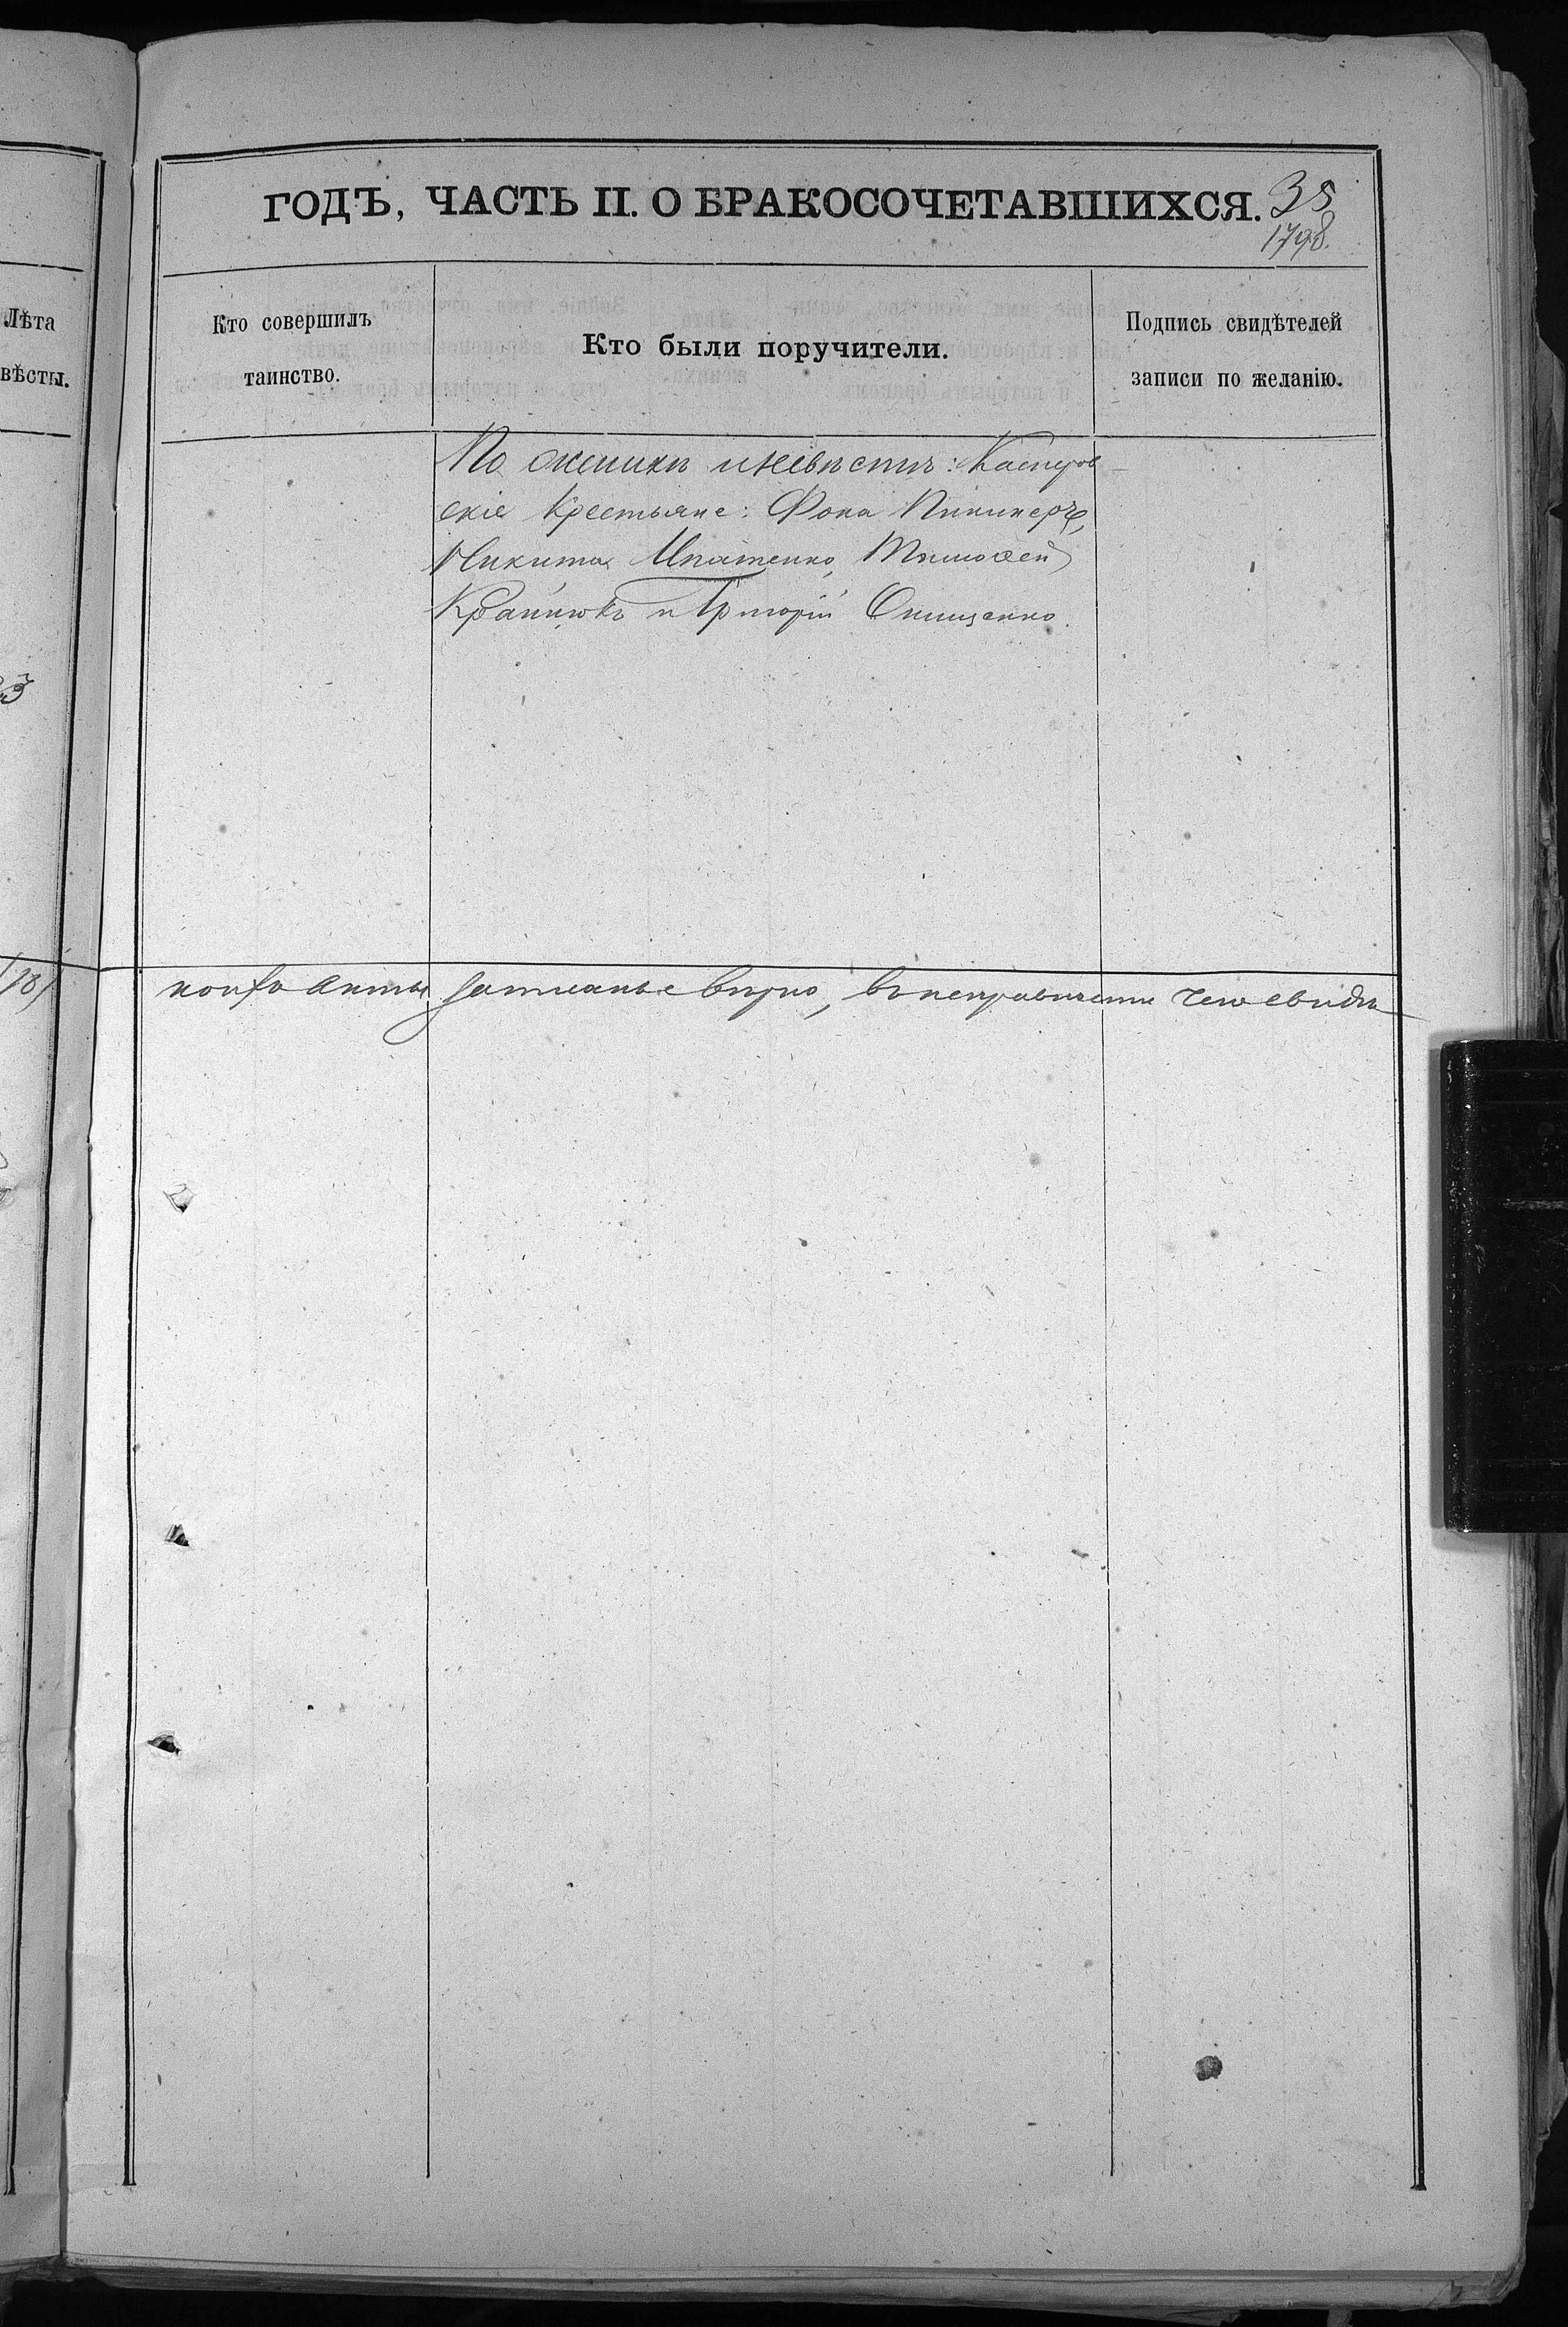 ГОДЪ, ЧАСТЬ II. О БРАКОСОЧЕТАВШИХСЯ.
35
1798.
Лѣта
вѣсты.
Кто совершилъ
таинство.
Кто были поручители.
Подпись свидѣтелей
записи по желанію.
По женихѣ и невѣстѣ:
скіе Крестьяне: Фока Пикинеръ,
Никита Ипатенко, Тимоѳей
Крайнюкъ и Григорій Онищенко.
23
акты записаны вѣрно, въ неправильности чего свидѣ